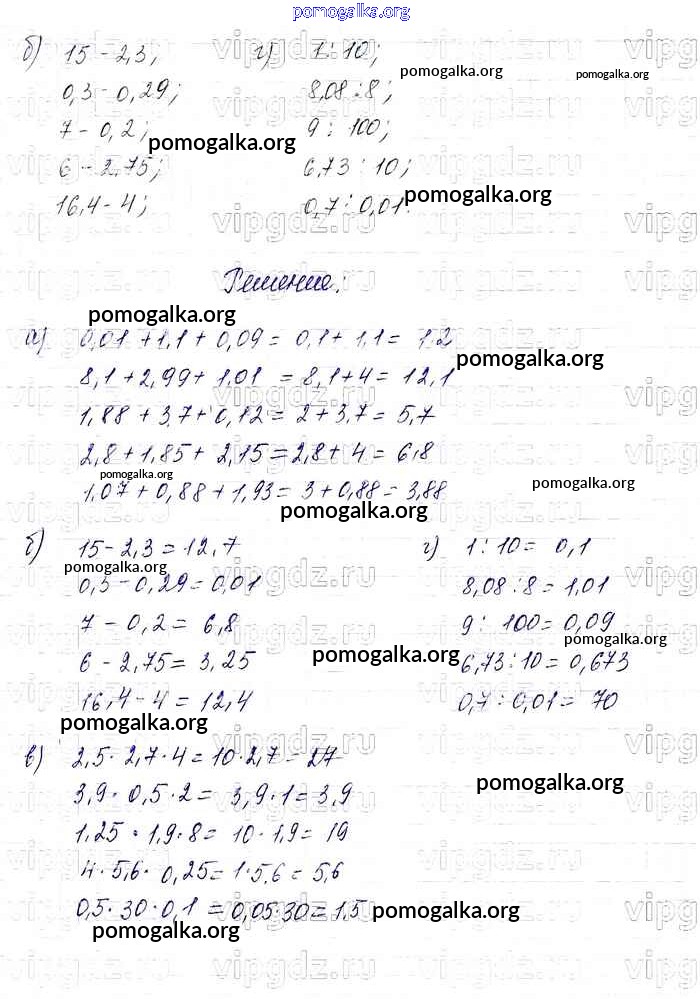 pomogalka.org
б) 15 - 2,3; г) 1 : 10;
0,3 - 0,29; 8,08 : 8;
7 - 0,2; 9 : 100;
6 - 2,75; 6,73 : 10;
16,4 - 4; 0,7 : 0,01.
Решение:
а) 0,01 + 1,1 + 0,09 = 0,1 + 1,1 = 1.2
8,1 + 2,99 + 1,01 = 8,1 + 4 = 12,1
1,88 + 3,7 + 0,12 = 2 + 3,7 = 5,7
2,8 + 1,85 + 2,15 = 2,8 + 4 = 6,8
1,07 + 0,88 + 1,93 = 3 + 0,88 = 3,88
б) 15 - 2,3 = 12,7 г) 1 : 10 = 0,1
0,3 - 0,29 = 0,01 8,08 : 8 = 1,01
7 - 0,2 = 6,8 9 : 100 = 0,09
6 - 2,75 = 3,25 6,73 : 10 = 0,673
16,4 - 4 = 12,4 0,7 : 0,01 = 70
в) 2,5 · 2,7 · 4 = 10 · 2,7 = 27
3,9 · 0,5 · 2 = 3,9 · 1 = 3,9
1,25 · 1,9 · 8 = 10 · 1,9 = 19
4 · 5,6 · 0,25 = 1 · 5,6 = 5,6
0,5 · 30 · 0,1 = 0,05 · 30 = 1,5